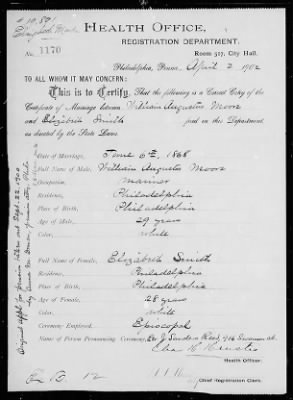 HEALTH OFFICE,
REGISTRATION DEPARTMENT.
No. 1170
Room 517, City Hall.
Philadelphia, Penna. April 2 1902
TO ALL WHOM IT MAY CONCERN:
This is to Certify, That the following is a Correct Copy of the
Certificate of Marriage between William Augustus Moore
and Elizabeth Smith filed in this Department,
as directed by the State Laws.
Date of Marriage, June 6th, 1868
Full Name of Male, William Augustus Moore
Occupation, mariner
Residence, Philadelphia
Place of Birth, Philadelphia
Age of Male, 29 years
Color, white
Full Name of Female, Elizabeth Smith
Residence, Philadelphia
Place of Birth, Philadelphia
Age of Female, 28 years
Color, white
Ceremony Employed, Episcopal
Name of Person Pronouncing Ceremony,
Health Officer.
Chief Registration Clerk.